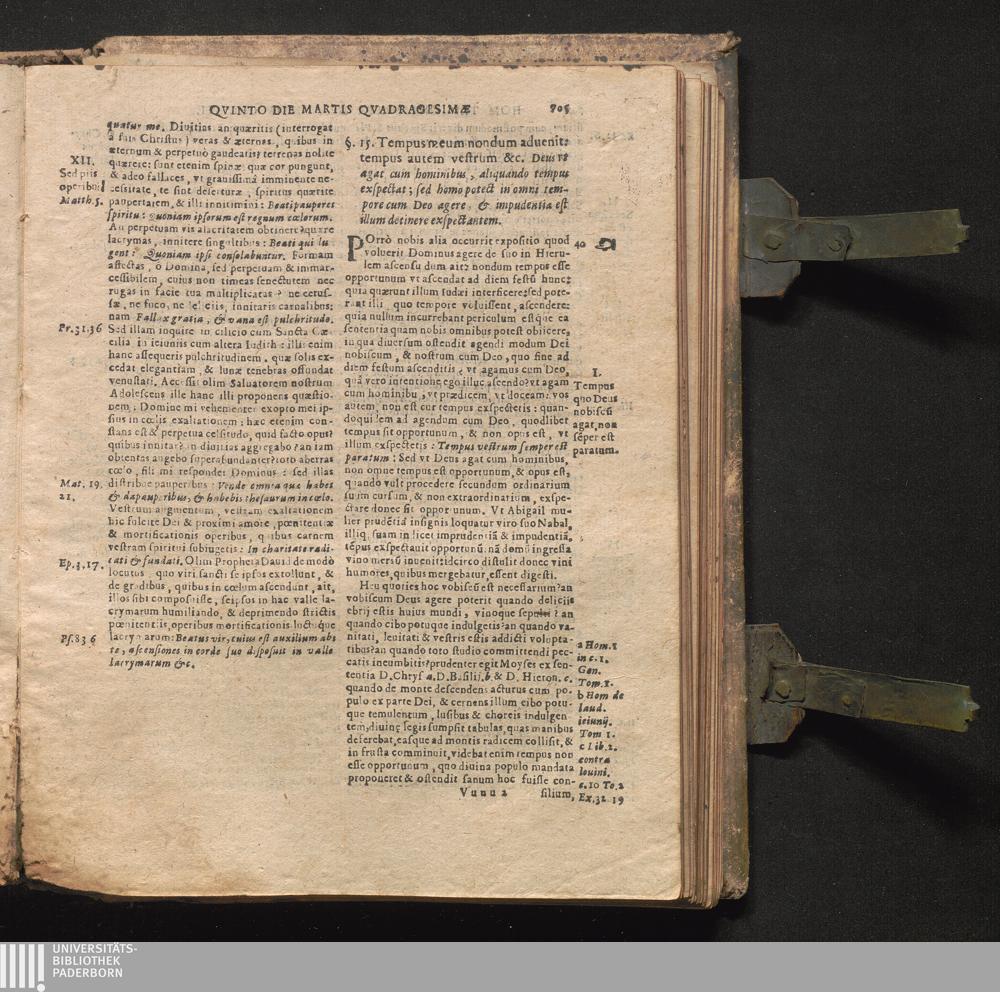 QVINTO DIE MARTIS QVADRAGESIMÆ 705
quatur me. Divitias an quæritis (interrogat
à suis Christus) veras & æternas, quibus in
æternum & perpetuò gaudeatis? terrenas nolite
quærere: sunt etenim spinæ quæ cor pungunt,
& adeo fallaces, vt gravissimâ imminente ne-
cessitate, te sint deserturæ, spiritus quærite
paupertatem, & illi innitimini: Beati pauperes
spiritu: Quoniam ipsorum est regnum cœlorum.
An perpetuam vis alacritatem obtinere? quære
lacrymas, innitere singultibus: Beati qui lu
gent: Quoniam ipsi consolabuntur. Formam
affectas, ô Domina, sed perpetuam & immar-
cessibilem, cuius non timeas senectutem nec
rugas in facie tua multiplicatas? ne cerus-
sæ, ne fuco, ne deliciis, innitaris carnalibus:
nam Fallax gratia, & vana est pulchritudo.
Sed illam inquire in cilicio cum Sancta Cæ
cilia in ieiuniis cum altera Iudith: illi enim
hanc assequeris pulchritudinem, quæ solis ex-
cedat elegantiam, & lunæ tenebras offundat
venustati. Accessit olim Salvatorem nostrum
Adolescens ille hanc illi proponens quæstio-
nem: Domine mi vehementer exopto mei ip-
sius in cœlis exaltationem: hæc etenim con-
stans est & perpetua celsitudo, quid facto opus?
quibus innitar? an divitias aggregabo? an iam
obtentas augebo superabundanter? toto aberras
cœlo, fili mi respondet Dominus: sed illas
distribue pauperibus: Vende omnia quæ habes
& da pauperibus, & habebis thesaurum in cœlo.
Vestrum augmentum, vestram exaltationem
hic fulcite Dei & proximi amore, pœnitentiæ
& mortificationis operibus, quibus carnem
vestram spiritui subiugetis: In charitate radi-
cati & fundati. Olim Propheta David de modò
locutus, quo viri sancti se ipsos extollunt, &
de gradibus, quibus in cœlum ascendunt, ait,
illos sibi composuisse, seipsos in hac valle la-
crymarum humiliando, & deprimendo strictis
pœnitentiis, operibus mortificationis, locoque
lacrymarum: Beatus vir, cuius est auxilium abs
te, ascensiones in corde suo disposuit in valle
lacrymarum &c.
XII.
Sed piis
operibus
Matth. 5.
Pr. 31. 36
Mat. 19.
21.
Ep. 3. 17.
Ps. 83 6
§. 15. Tempus meum nondum advenit:
tempus autem vestrum &c. Deus vt
agat cum hominibus, aliquando tempus
exspectat; sed homo potest in omni tem-
pore cum Deo agere, & impudentia est
illum detinere exspectantem.
POrrò nobis alia occurrit expositio quod
voluerit Dominus agere de suo in Hieru-
lem ascensu dum ait: nondum tempus esse
opportunum vt ascendat ad diem festū hunc:
quia quærunt illum Iudæi interficere: sed pote-
rant illi, quo tempore voluissent, ascendere:
quia nullum incurrebant periculum estque ea
sententia quam nobis omnibus potest obiicere,
in qua diversum ostendit agendi modum Dei
nobiscum, & nostrum cum Deo, quo fine ad
diem festum ascenditis, vt agamus cum Deo,
quâ vero intentione ego illuc ascendo? vt agam
cum hominibus, vt prædicem, vt doceam: vos
autem non est cur tempus exspectetis: quan-
doquidem ad agendum cum Deo, quodlibet
tempus sit opportunum, & non opus est, vt
illum exspectetis: Tempus vestrum semper est
paratum: Sed vt Deus agat cum hominibus,
non omne tempus est opportunum, & opus est,
quando vult procedere secundum ordinarium
suum cursum, & non extraordinarium, exspe-
ctare donec sit opportunum. Vt Abigail mu-
lier prudētiâ insignis loquatur viro suo Nabal,
illiq; suam indicet imprudentiā & impudentiā,
tēpus exspectavit opportunū: nā domū ingressa
vino mersū invenit: idcirco distulit donec vini
humores, quibus mergebatur, essent digesti.
Heu quoties hoc vobiscū est necessarium? an
vobiscum Deus agere poterit quando deliciis
ebrij estis huius mundi, vinoque sepulti? an
quando cibo potuque indulgetis? an quando va-
nitati, levitati & vestris estis addicti volupta-
tibus? an quando toto studio committendi pec-
catis incumbitis? prudenter egit Moyses ex sen-
tentia D. Chrys a. D. Basilij. b & D. Hieron. c.
quando de monte descendens acturus cum po-
pulo ex parte Dei, & cernens illum cibo potu-
que temulentum, lusibus & choreis indulgen-
tem, divinę legis sumpsit tabulas, quas manibus
deferebat, easque ad montis radicem collisit, &
in frusta comminuit, videbat enim tempus non
esse opportunum, quo divina populo mandata
proponeret & ostendit sanum hoc fuisse con-
Vuuu 2 silium,
40
I.
Tempus
quo Deus
nobiscū
agat, non
sēper est
paratum.
a Hom. 1
in c. 1.
Gen.
Tom. 1.
b Hom de
laud.
ieiunij.
Tom 1.
c Lib. 2.
contra
Iovini.
c. 10 To. 2
Ex. 32 19
UNIVERSITÄTS-
BIBLIOTHEK
PADERBORN